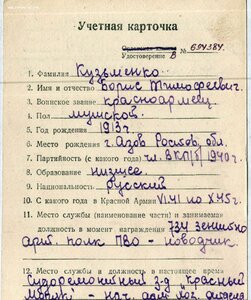 Учетная карточка
Орденская книжка
Удостоверение В № 694384
1. Фамилия Кузьменко
2. Имя и отчество Борис Тимофеевич
3. Воинское звание красноармеец
4. Пол мужской
5. Год рождения 1913г.
6. Место рождения г. Азов Ростов. обл.
7. Партийность (с какого года) чл. ВКП/б 1940г.
8. Образование низшее
9. Национальность русский
10. С какого года в Красной Армии VI.41 по X.45г.
11. Место службы (наименование части) и занимаемая
должность в момент награждения 734 зенитно
арт. полк ПВО - наводчик.
12. Место службы и должность в настоящее время
Судоремонтный з-д "Красный